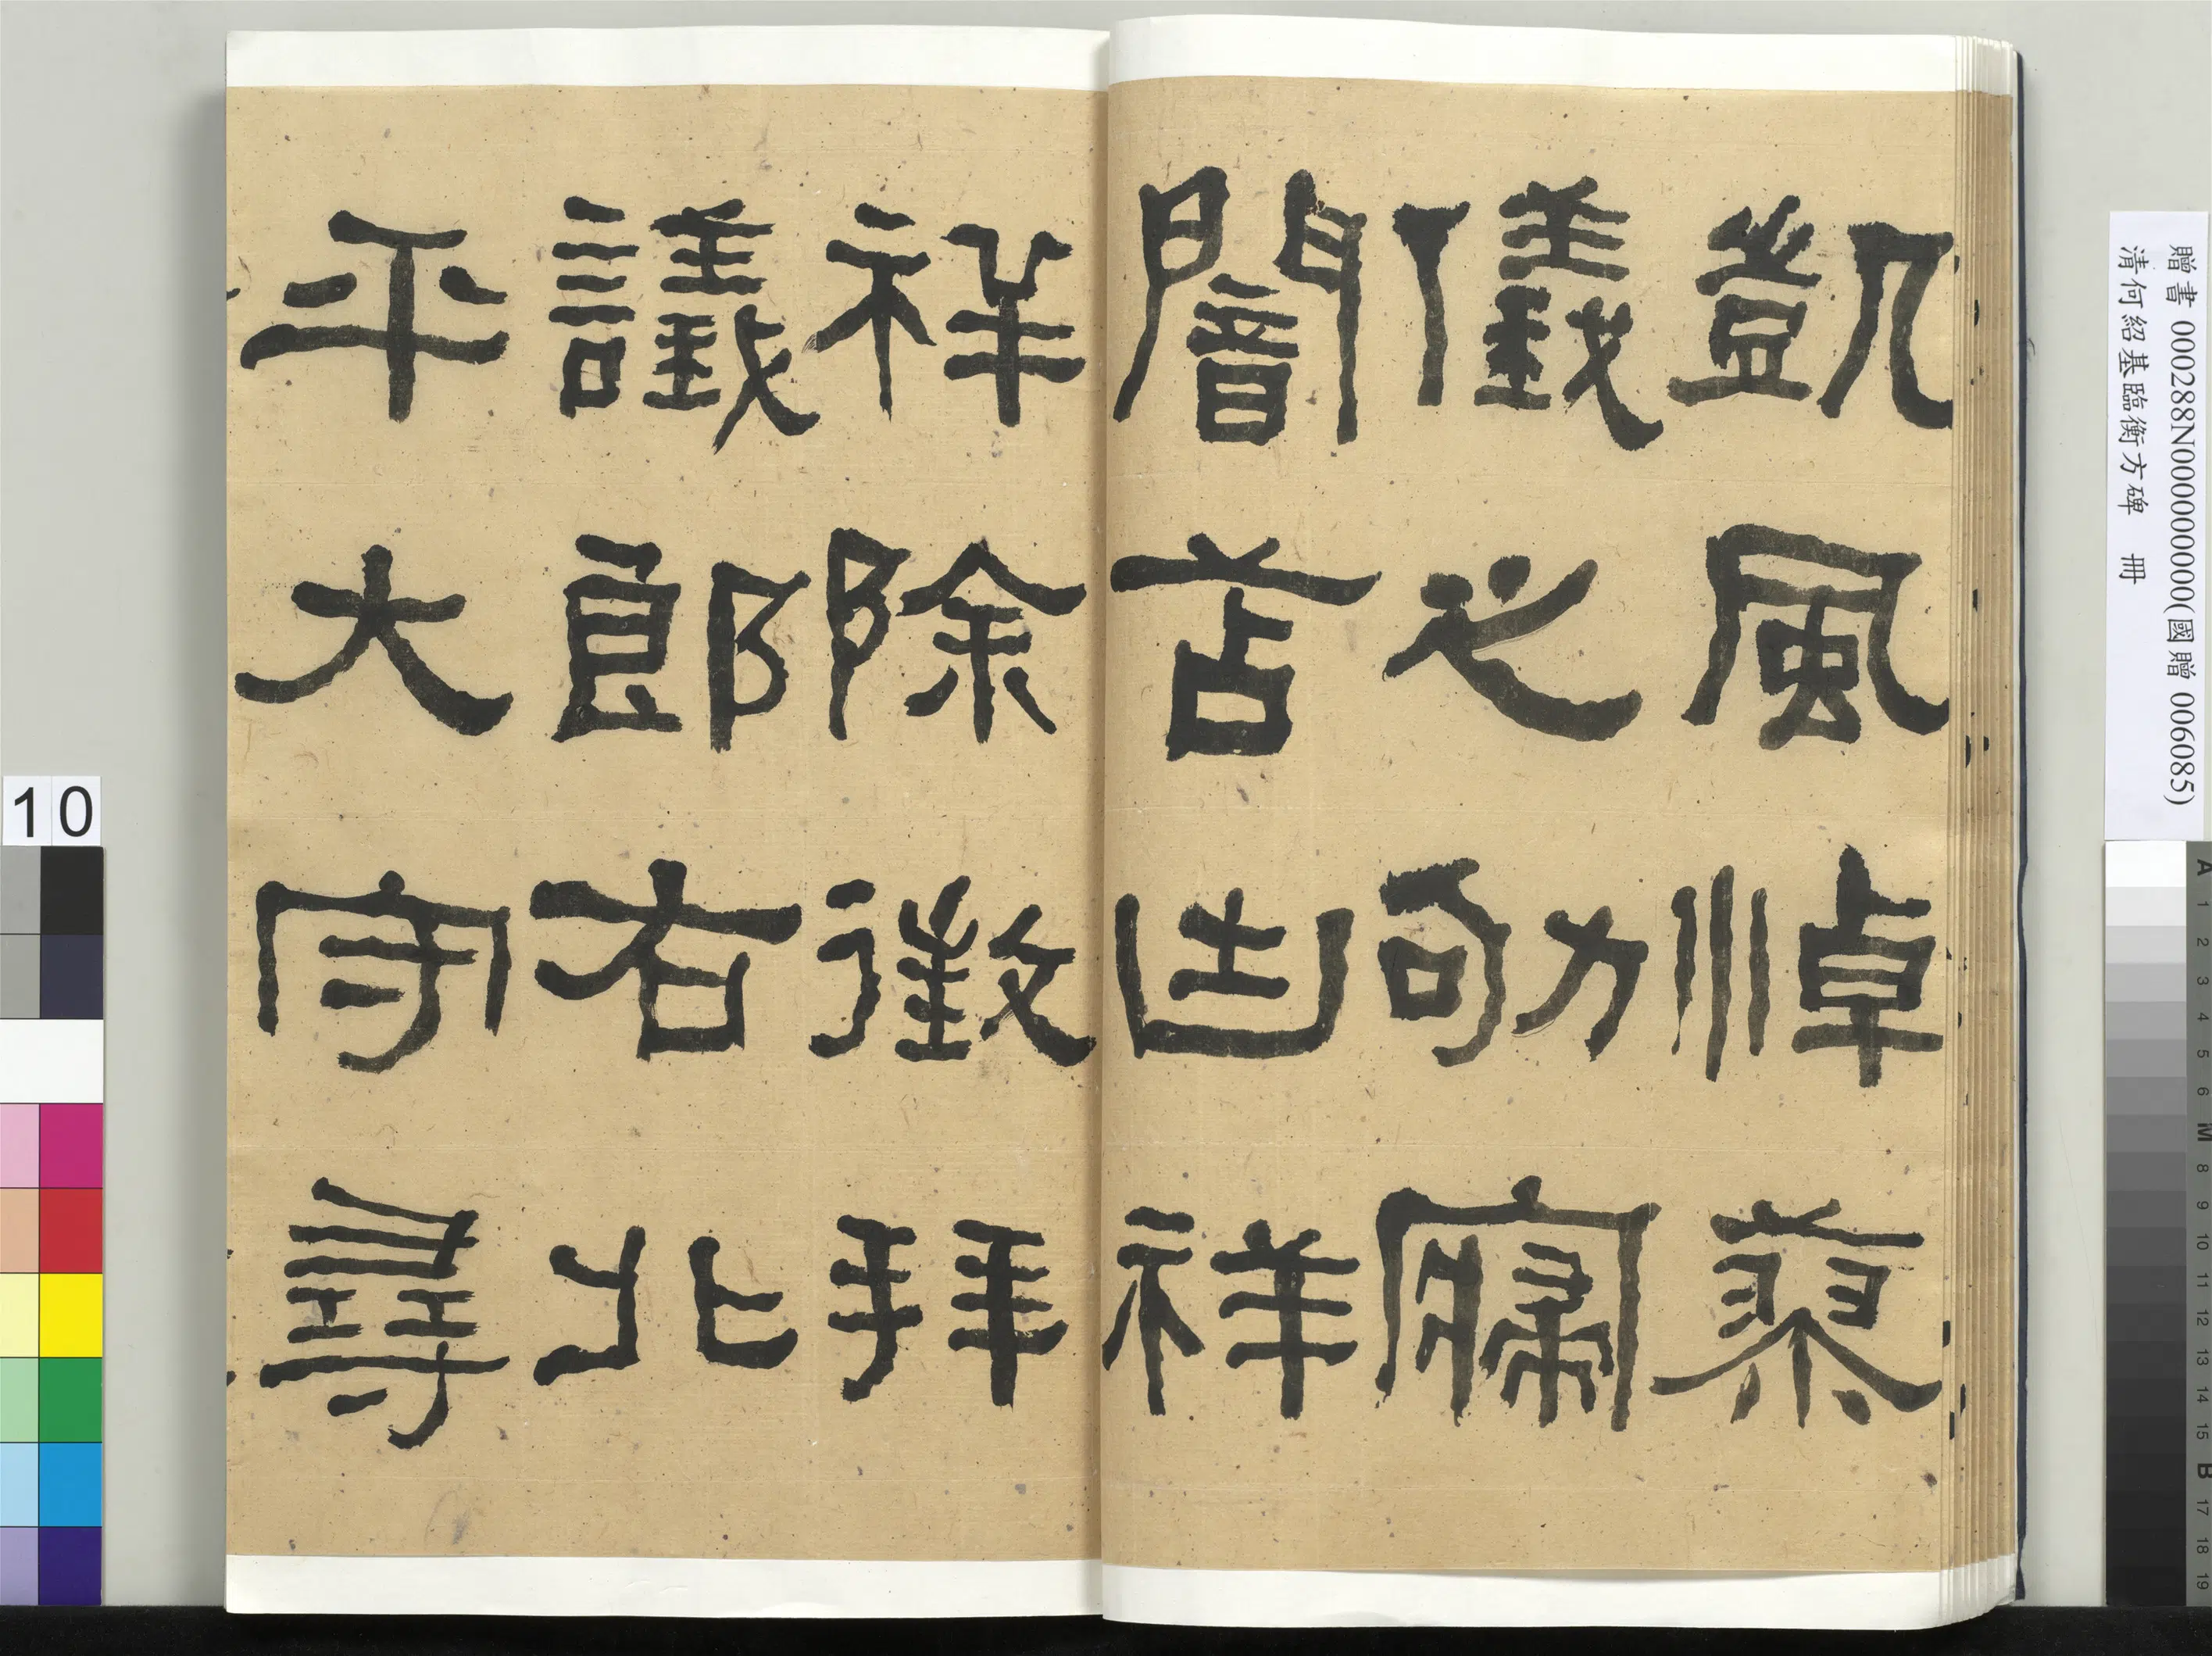 凱風悼蓼
儀之劬𤸰
闇苫凷祥
祥除徵拜
議郎右北
平大守尋
贈書 000288N000000000(國贈 006085)
清何紹基臨衡方碑 冊
10
A 1 2 3 4 5 6 M 8 9 10 11 12 13 14 15 B 17 18 19